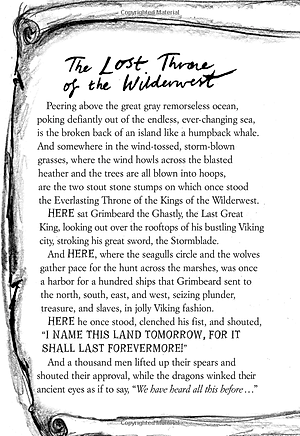 Copyrighted Material
The Lost Throne
of the Wilderwest
Peering above the great gray remorseless ocean,
poking defiantly out of the endless, ever-changing sea,
is the broken back of an island like a humpback whale.
And somewhere in the wind-tossed, storm-blown
grasses, where the wind howls across the blasted
heather and the trees are all blown into hoops,
are the two stout stone stumps on which once stood
the Everlasting Throne of the Kings of the Wilderwest.
HERE sat Grimbeard the Ghastly, the Last Great
King, looking out over the rooftops of his bustling Viking
city, stroking his great sword, the Stormblade.
And HERE, where the seagulls circle and the wolves
gather pace for the hunt across the marshes, was once
a harbor for a hundred ships that Grimbeard sent to
the north, south, east, and west, seizing plunder,
treasure, and slaves, in jolly Viking fashion.
HERE he once stood, clenched his fist, and shouted,
"I NAME THIS LAND TOMORROW, FOR IT
SHALL LAST FOREVERMORE!"
And a thousand men lifted up their spears and
shouted their approval, while the dragons winked their
ancient eyes as if to say, "We have heard all this before…"
Copyrighted Material